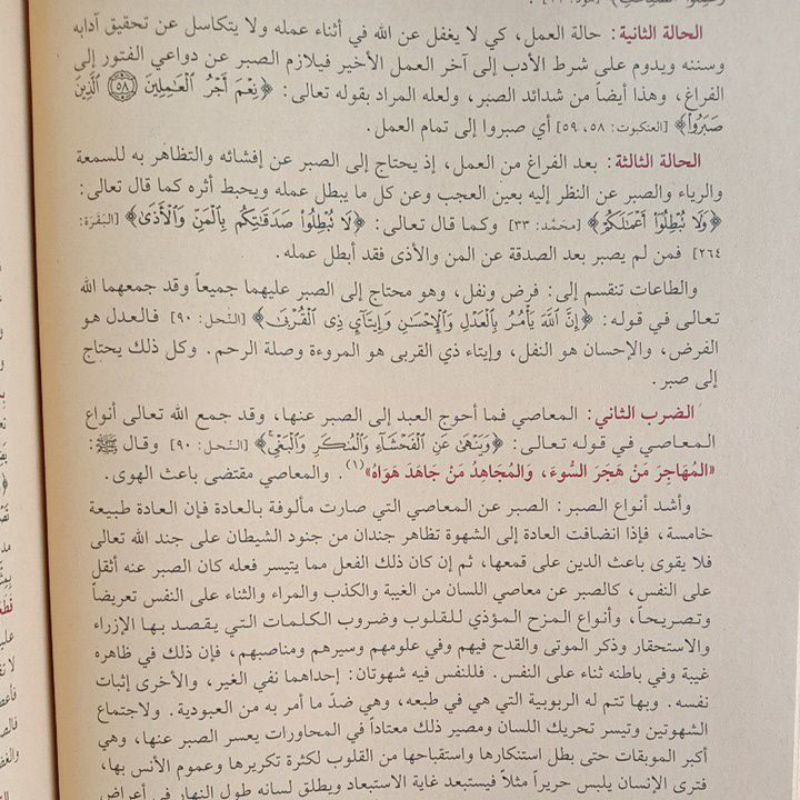 الحالة الثانية: حالة العمل، كي لا يغفل عن الله في أثناء عمله ولا يتكاسل عن تحقيق آدابه
وسننه ويدوم على شرط الأدب إلى آخر العمل الأخير فيلازم الصبر عن دواعي الفتور إلى
الفراغ، وهذا أيضاً من شدائد الصبر، ولعله المراد بقوله تعالى: ﴿نِعْمَ أَجْرُ الْعَٰمِلِينَ ۝٥٨ الَّذِينَ
صَبَرُوا﴾ [العنكبوت: ٥٨، ٥٩] أي صبروا إلى تمام العمل.
الحالة الثالثة: بعد الفراغ من العمل، إذ يحتاج إلى الصبر عن إفشائه والتظاهر به للسمعة
والرياء والصبر عن النظر إليه بعين العجب وعن كل ما يبطل عمله ويحبط أثره كما قال تعالى:
﴿وَلَا تُبْطِلُوٓا أَعْمَٰلَكُمْ﴾ [محَمَّد: ٣٣] وكما قال تعالى: ﴿لَا تُبْطِلُوا صَدَقَٰتِكُم بِالْمَنِّ وَالْأَذَىٰ﴾ [البَقَرَة:
٢٦٤] فمن لم يصبر بعد الصدقة عن المن والأذى فقد أبطل عمله.
والطاعات تنقسم إلى: فرض ونفل، وهو محتاج إلى الصبر عليهما جميعاً وقد جمعهما الله
تعالى في قوله: ﴿إِنَّ اللَّهَ يَأْمُرُ بِالْعَدْلِ وَالْإِحْسَٰنِ وَإِيتَآيِٕ ذِى الْقُرْبَىٰ﴾ [النّحل: ٩٠] فالعدل هو
الفرض، والإحسان هو النفل، وإيتاء ذي القربى هو المروءة وصلة الرحم. وكل ذلك يحتاج
إلى صبر.
الضرب الثاني: المعاصي فما أحوج العبد إلى الصبر عنها، وقد جمع الله تعالى أنواع
المعاصي في قوله تعالى: ﴿وَيَنْهَىٰ عَنِ الْفَحْشَآءِ وَالْمُنكَرِ وَالْبَغْيِ﴾ [النّحل: ٩٠] وقال ﷺ:
«المُهَاجِرَ مَنْ هَجَرَ السُّوءَ، وَالمُجَاهِدُ مَنْ جَاهَدَ هَوَاهُ»(١). والمعاصي مقتضى باعث الهوى.
وأشد أنواع الصبر: الصبر عن المعاصي التي صارت مألوفة بالعادة فإن العادة طبيعة
خامسة، فإذا انضافت العادة إلى الشهوة تظاهر جندان من جنود الشيطان على جند الله تعالى
فلا يقوى باعث الدين على قمعها، ثم إن كان ذلك الفعل مما يتيسر فعله كان الصبر عنه أثقل
على النفس، كالصبر عن معاصي اللسان من الغيبة والكذب والمراء والثناء على النفس تعريضاً
وتصريحاً، وأنواع المزح المؤذي للقلوب وضروب الكلمات التي يقصد بها الإزراء
والاستحقار وذكر الموتى والقدح فيهم وفي علومهم وسيرهم ومناصبهم، فإن ذلك في ظاهره
غيبة وفي باطنه ثناء على النفس. فللنفس فيه شهوتان: إحداهما نفي الغير، والأخرى إثبات
نفسه. وبها تتم له الربوبية التي هي في طبعه، وهي ضدّ ما أمر به من العبودية. ولاجتماع
الشهوتين وتيسر تحريك اللسان ومصير ذلك معتاداً في المحاورات يعسر الصبر عنها، وهي
أكبر الموبقات حتى بطل استنكارها واستقباحها من القلوب لكثرة تكريرها وعموم الأنس بها،
فترى الإنسان يلبس حريراً مثلاً فيستبعد غاية الاستبعاد ويطلق لسانه طول النهار في أعراض